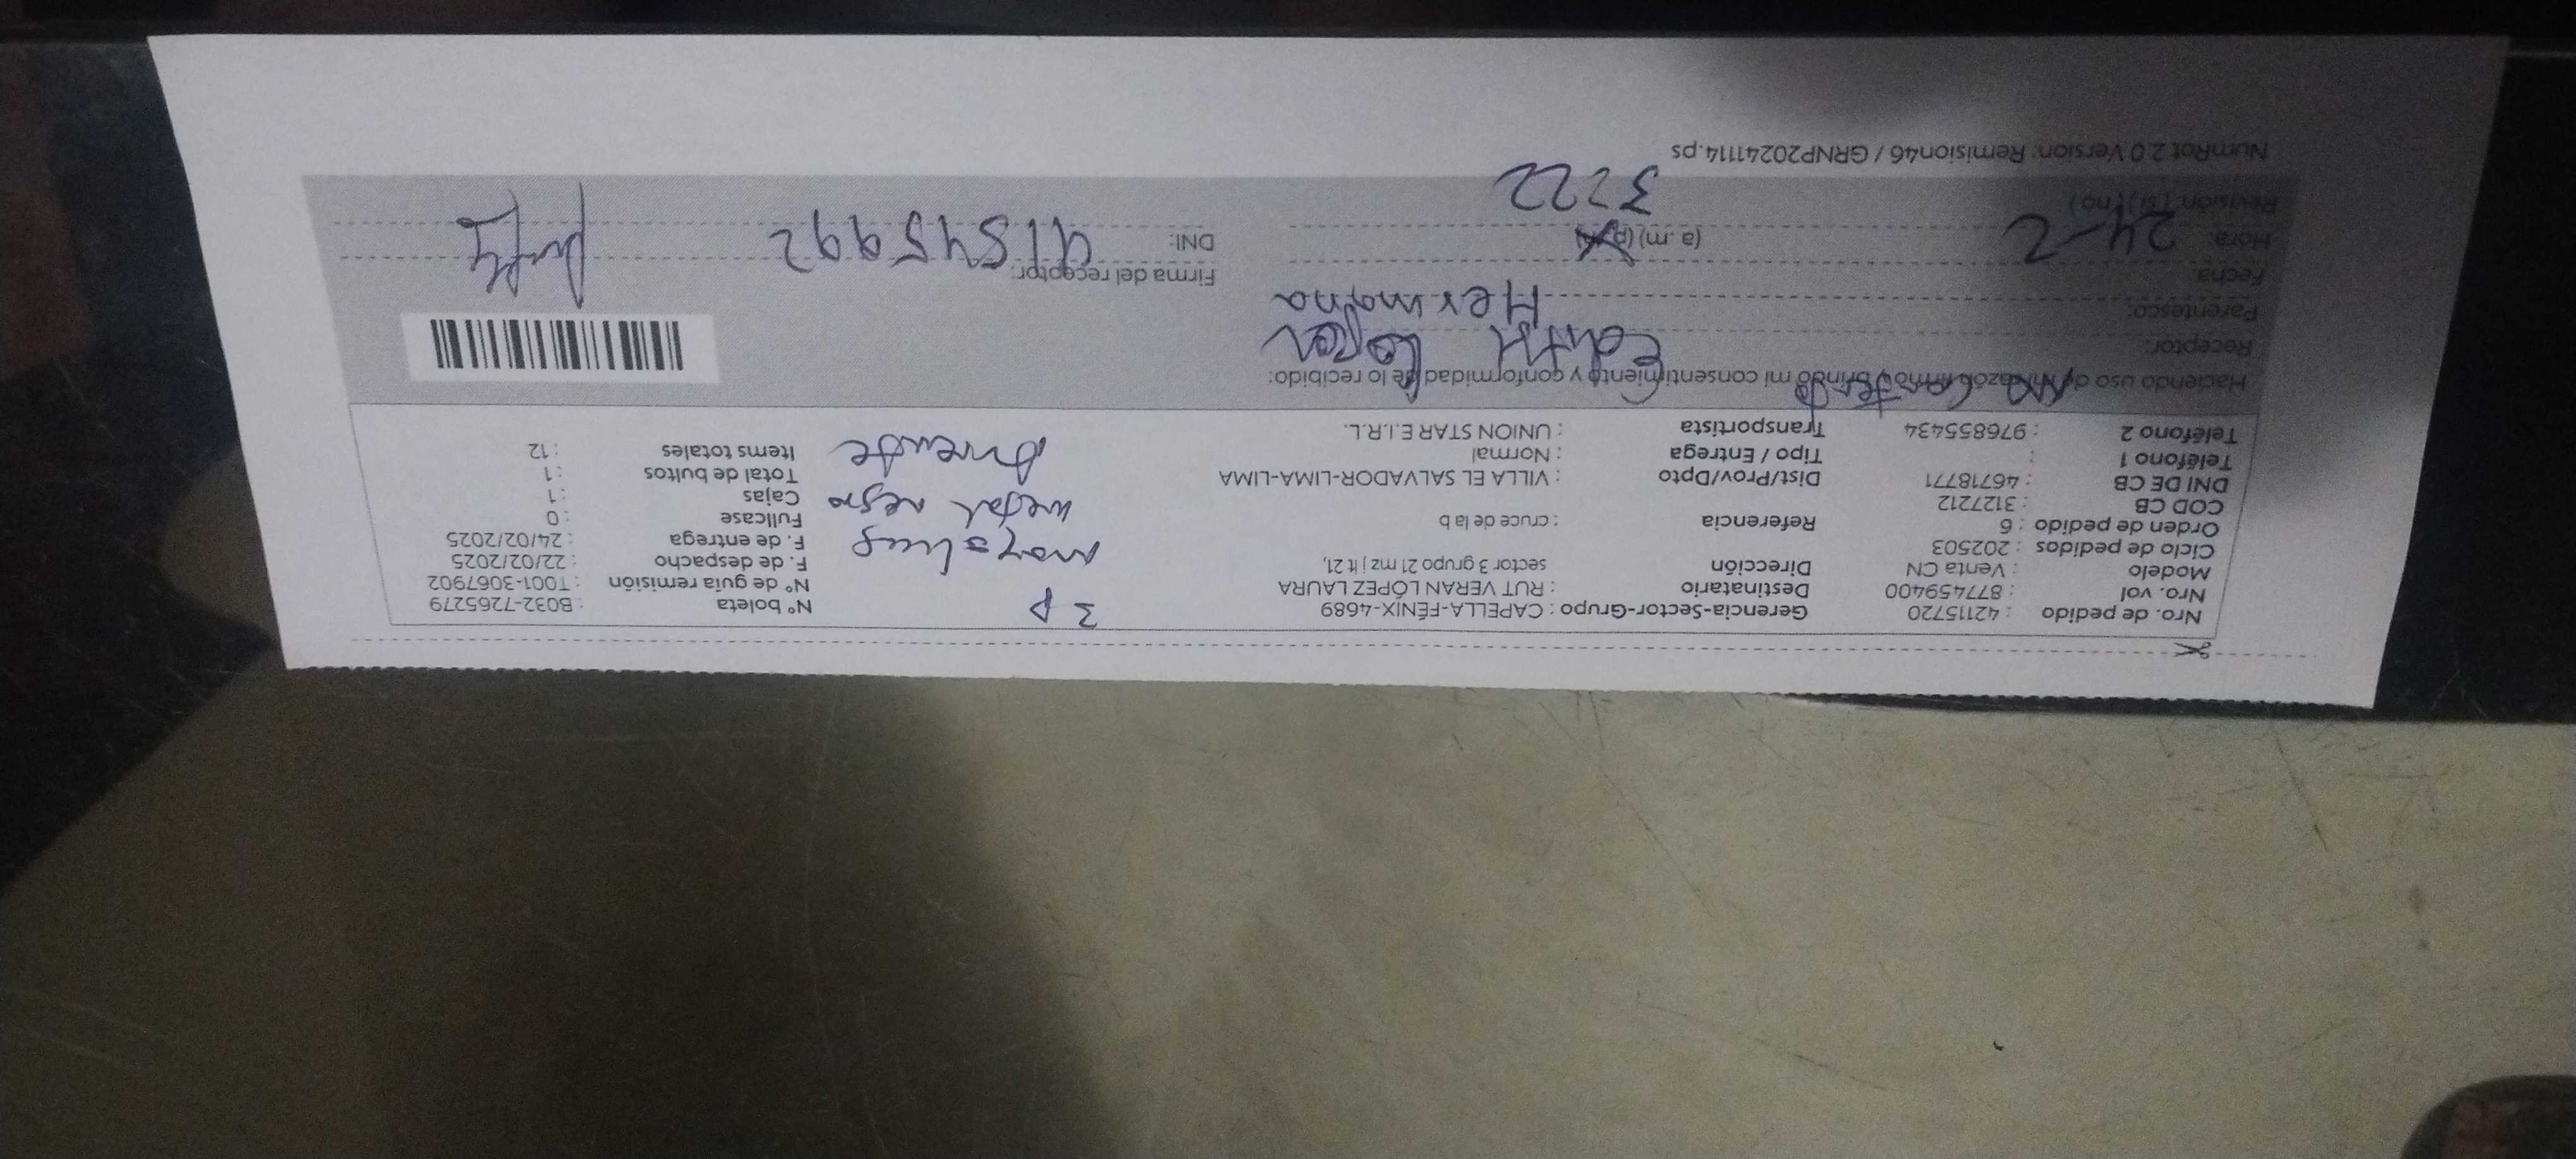 Nro. de pedido : 42115720 Gerencia-Sector-Grupo : CAPELLA-FÉNIX-4689 3 P N° boleta : B032-7265279
Nro. vol : 877459400 Destinatario : RUT VERAN LÓPEZ LAURA N° de guía remisión : T001-3067902
Modelo : Venta CN Dirección sector 3 grupo 21 mz j lt 21, mayolica F. de despacho : 22/02/2025
Ciclo de pedidos : 202503 F. de entrega : 24/02/2025
Orden de pedido : 6 Referencia : cruce de la b metal negro Fullcase : 0
COD CB : 3127212 Cajas : 1
DNI DE CB : 46718771 Dist/Prov/Dpto : VILLA EL SALVADOR-LIMA-LIMA Total de bultos : 1
Teléfono 1 : Tipo / Entrega : Normal Items totales : 12
Teléfono 2 : 976855434 Transportista : UNION STAR E.I.R.L.
Haciendo uso de mi razón firmo y brindo mi consentimiento y conformidad de lo recibido:
Receptor: Edith López
Parentesco: Hermana
Fecha: Firma del receptor:
Hora: 24-2 (a.m) (p.m) DNI: 41545992
Revisión: (si) (no) 3:22
NumRot 2.0 Version: Remision46 / GRNP20241114.ps